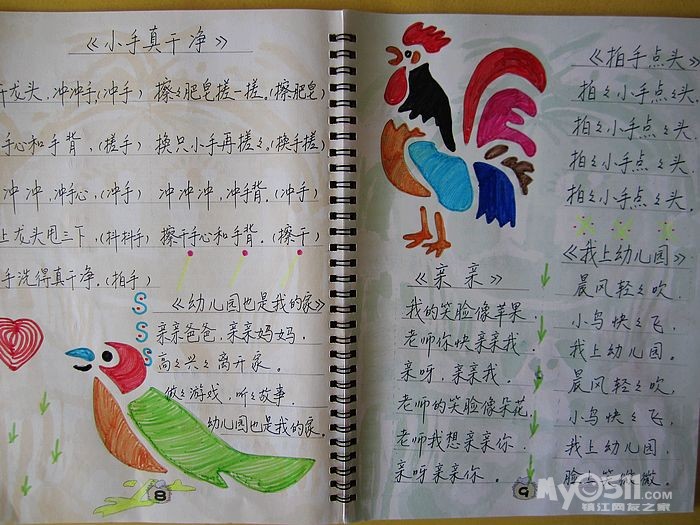 《小手真干净》
开龙头，冲冲手，(冲手) 擦々肥皂搓一搓，(擦肥皂)
手心和手背，(搓手) 换只小手再搓々。(换手搓)
冲 冲，冲手心，(冲手) 冲 冲 冲，冲手背，(冲手)
上龙头甩三下，(抖抖手) 擦干手心和手背。(擦干)
手洗得真干净。(拍手)
《幼儿园也是我的家》
亲亲爸爸，亲亲妈妈，
高々兴々离开家。
做々游戏，听々故事，
幼儿园也是我的家。
8
《拍手点头》
拍々小手点々头，
拍々小手点々头，
拍々小手点々头，
拍々小手点々头。
《亲亲》
我的笑脸像苹果，
老师你快亲亲我，
亲呀，亲亲我。
老师的笑脸像朵花，
老师我想亲亲你，
亲呀亲亲你。
《我上幼儿园》
晨风轻々吹，
小鸟快々飞，
我上幼儿园。
晨风轻々吹，
小鸟快々飞，
我上幼儿园，
脸上笑微微。
9
MYOSII.com
镇江网友之家